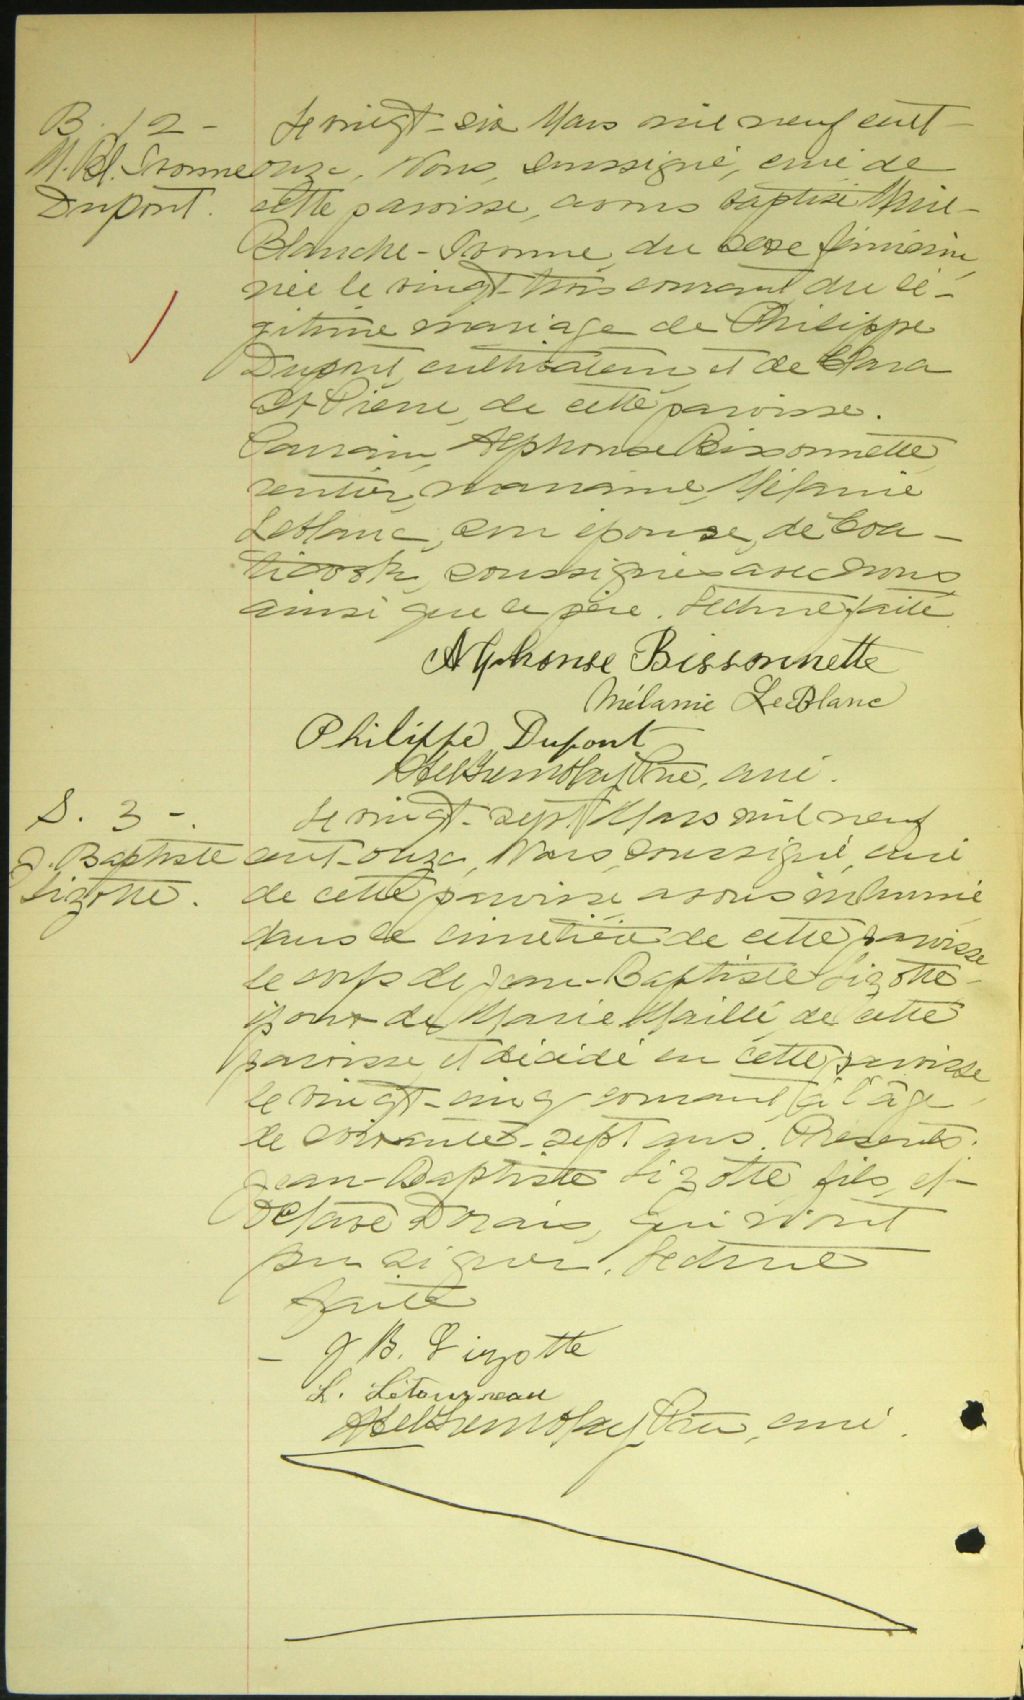 B. 12 -
M. Bl. Ivonne
Dupont.
Le vingt-six Mars mil neuf cent-
onze, Nous, soussigné, curé de
cette paroisse, avons baptisé Marie-
Blanche-Ivonne, du sexe féminin,
née le vingt-trois courant du lé-
gitime mariage de Philippe
Dupont, cultivateur et de Clara
St Pierre, de cette paroisse.
Parrain, Alphonse Bissonnette,
rentier, marraine, Mélanie
Leblanc, son épouse, de Coa-
ticook, soussignés avec nous
ainsi que le père. Lecture faite
Alphonse Bissonnette
Mélanie LeBlanc
Philippe Dupont
Ptre, curé.
S. 3 -.
J. Baptiste
Lizotte.
Le vingt-sept Mars mil neuf
cent-onze, Nous, soussigné, curé
de cette paroisse, avons inhumé
dans le cimetière de cette paroisse
le corps de Jean-Baptiste Lizotte-
époux de Marie Maillé, de cette
paroisse, et décédé en cette paroisse
le vingt-cinq courant, à l'âge
de soixante-sept ans. Présents:
Jean-Baptiste Lizotte, fils, et
Octave Dorais, qui n'ont
pu signer. Lecture
faite
- J B. Lizotte
L. Létourneau
Ptre, curé.